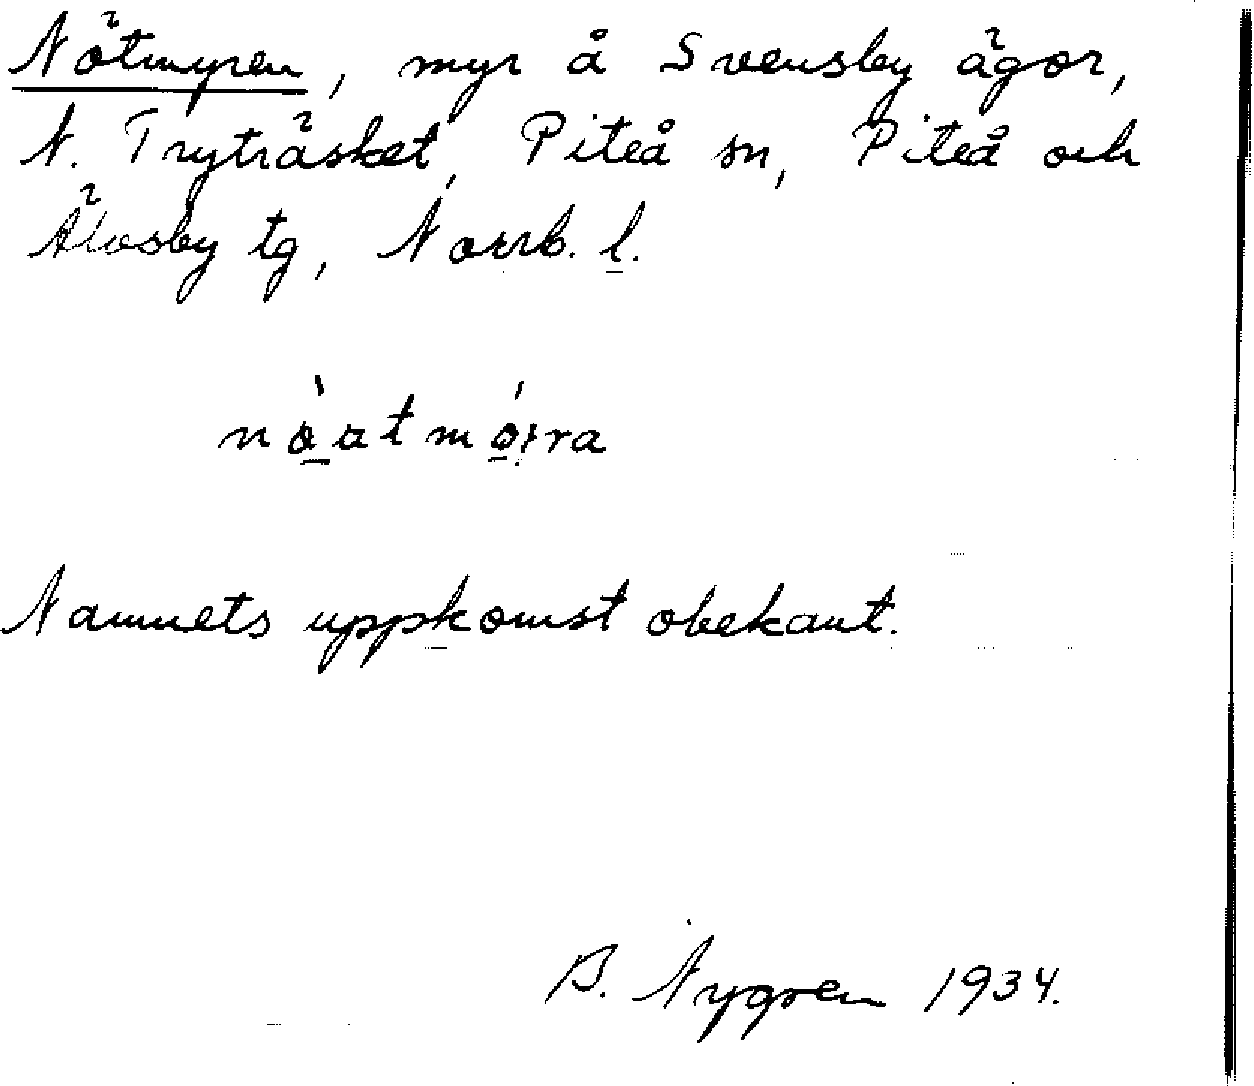 Nötmyren, myr å Svensby ägor,
N. Tryträsket, Piteå sn, Piteå och
Älvsby tg, Norrb. l.
nò̱atmó̱:ra
Namnets uppkomst obekant.
B. Nygren 1934.